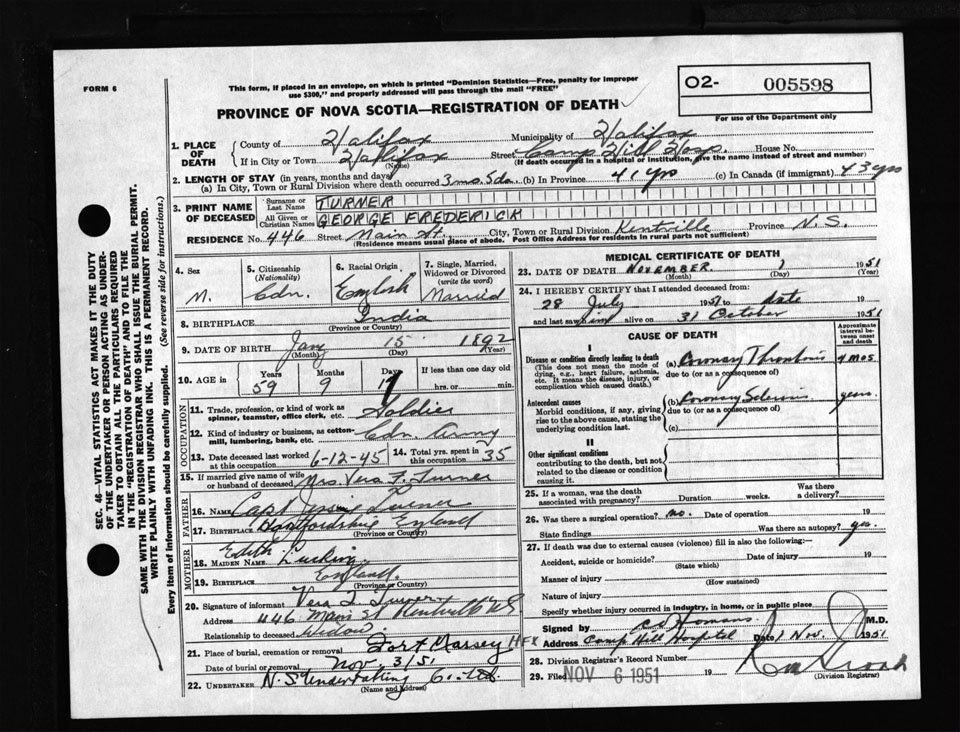 FORM 6
This form, if placed in an envelope, on which is printed "Dominion Statistics—Free, penalty for improper
use $300," and properly addressed will pass through the mail "FREE"
O2- 005598
For use of the Department only
PROVINCE OF NOVA SCOTIA—REGISTRATION OF DEATH
1. PLACE OF DEATH
County of Halifax Municipality of Halifax
If in City or Town Halifax Street Camp Hill Hosp. House No.
(Name) (If death occurred in a hospital or institution, give the name instead of street and number)
2. LENGTH OF STAY (in years, months and days)
(a) In City, Town or Rural Division where death occurred 3 mo. 5 da. (b) In Province 41 yrs (c) In Canada (if immigrant) 43 yrs
3. PRINT NAME OF DECEASED
Surname or Last Name TURNER
All Given or Christian Names GEORGE FREDERICK
RESIDENCE No. 446 Street Main St. City, Town or Rural Division Kentville Province N.S.
(Residence means usual place of abode. Post Office Address for residents in rural parts not sufficient)
4. Sex M.
5. Citizenship (Nationality) Cdn.
6. Racial Origin English
7. Single, Married, Widowed or Divorced (write the word) Married
8. BIRTHPLACE India
(Province or Country)
9. DATE OF BIRTH Jany 15 1892
(Month) (Day) (Year)
10. AGE in Years 59 Months 9 Days 17 If less than one day old hrs. or min.
OCCUPATION
11. Trade, profession, or kind of work as spinner, teamster, office clerk, etc. Soldier
12. Kind of industry or business, as cotton-mill, lumbering, bank, etc. Cdn. Army
13. Date deceased last worked at this occupation 6-12-45 14. Total yrs. spent in this occupation 35
15. If married give name of wife or husband of deceased Mrs. Vera F. Turner
FATHER
16. NAME Capt Turner
17. BIRTHPLACE England
(Province or Country)
MOTHER
18. MAIDEN NAME Edith
19. BIRTHPLACE England.
(Province or Country)
20. Signature of informant Vera F. Turner
Address 446 Main St Kentville N.S.
Relationship to deceased Widow.
21. Place of burial, cremation or removal Fort Massey HFX
Date of burial or removal Nov 3/51
22. UNDERTAKER N.S Undertaking Co. Ltd.
(Name and Address)
MEDICAL CERTIFICATE OF DEATH
23. DATE OF DEATH NOVEMBER 1 1951
(Month) (Day) (Year)
24. I HEREBY CERTIFY that I attended deceased from:
28 July 1951 to date 19
and last saw him alive on 31 October 1951
CAUSE OF DEATH
Approximate interval between onset and death
I
Disease or condition directly leading to death
(This does not mean the mode of dying, e.g., heart failure, asthenia, etc. It means the disease, injury, or complication which caused death.)
(a) Coronary Thrombosis 4 mos
due to (or as a consequence of)
Antecedent causes
Morbid conditions, if any, giving rise to the above cause, stating the underlying condition last.
(b) Coronary Sclerosis years
due to (or as a consequence of)
(c)
II
Other significant conditions
contributing to the death, but not related to the disease or condition causing it.
25. If a woman, was the death associated with pregnancy? Duration weeks. Was there a delivery?
26. Was there a surgical operation? no. Date of operation 19
State findings Was there an autopsy? yes.
27. If death was due to external causes (violence) fill in also the following:
Accident, suicide or homicide? Date of injury 19
(State which)
Manner of injury
(How sustained)
Nature of injury
Specify whether injury occurred in industry, in home, or in public place
Signed by Homans M.D.
Address Camp Hill Hospital Date 1 Nov. 1951
28. Division Registrar's Record Number
29. Filed NOV 6 1951 19
(Division Registrar)
SEC. 46—VITAL STATISTICS ACT MAKES IT THE DUTY
OF THE UNDERTAKER OR PERSON ACTING AS UNDER-
TAKER TO OBTAIN ALL THE PARTICULARS REQUIRED
IN THE "REGISTRATION OF DEATH" AND TO FILE THE
SAME WITH THE DIVISION REGISTRAR WHO SHALL ISSUE THE BURIAL PERMIT.
WRITE PLAINLY WITH UNFADING INK. THIS IS A PERMANENT RECORD.
Every item of information should be carefully supplied. (See reverse side for instructions.)